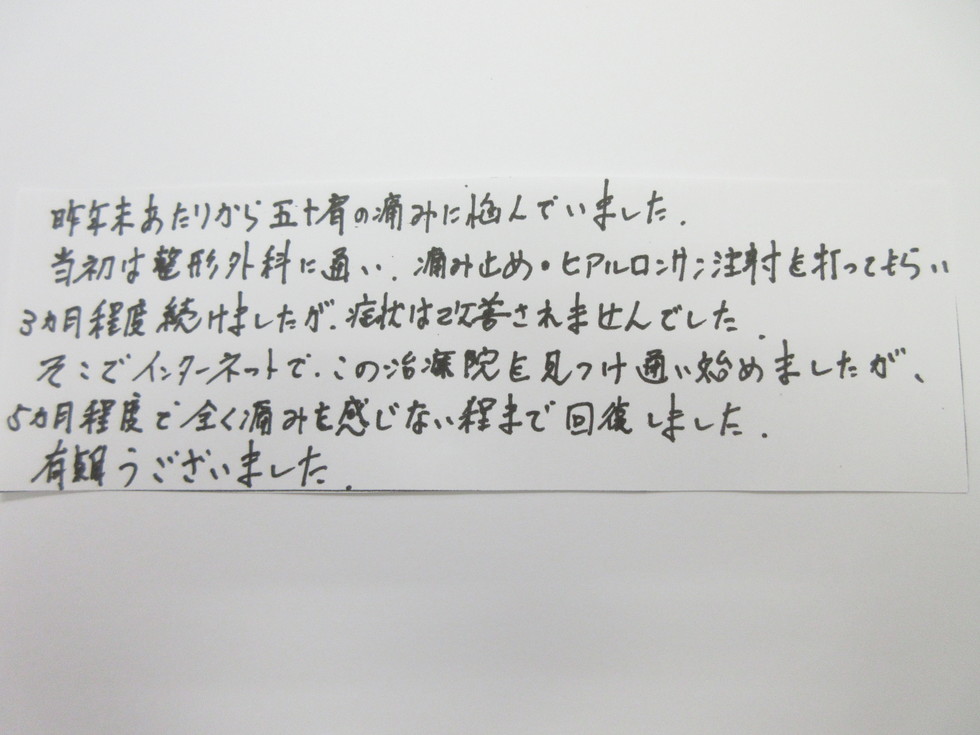 昨年末あたりから五十肩の痛みに悩んでいました.
当初は整形外科に通い、痛み止め・ヒアルロンサン注射を打ってもらい
3カ月程度続けましたが、症状は改善されませんでした.
そこでインターネットで、この治療院を見つけ通い始めましたが、
5カ月程度で全く痛みを感じない程まで回復しました.
有難うございました.